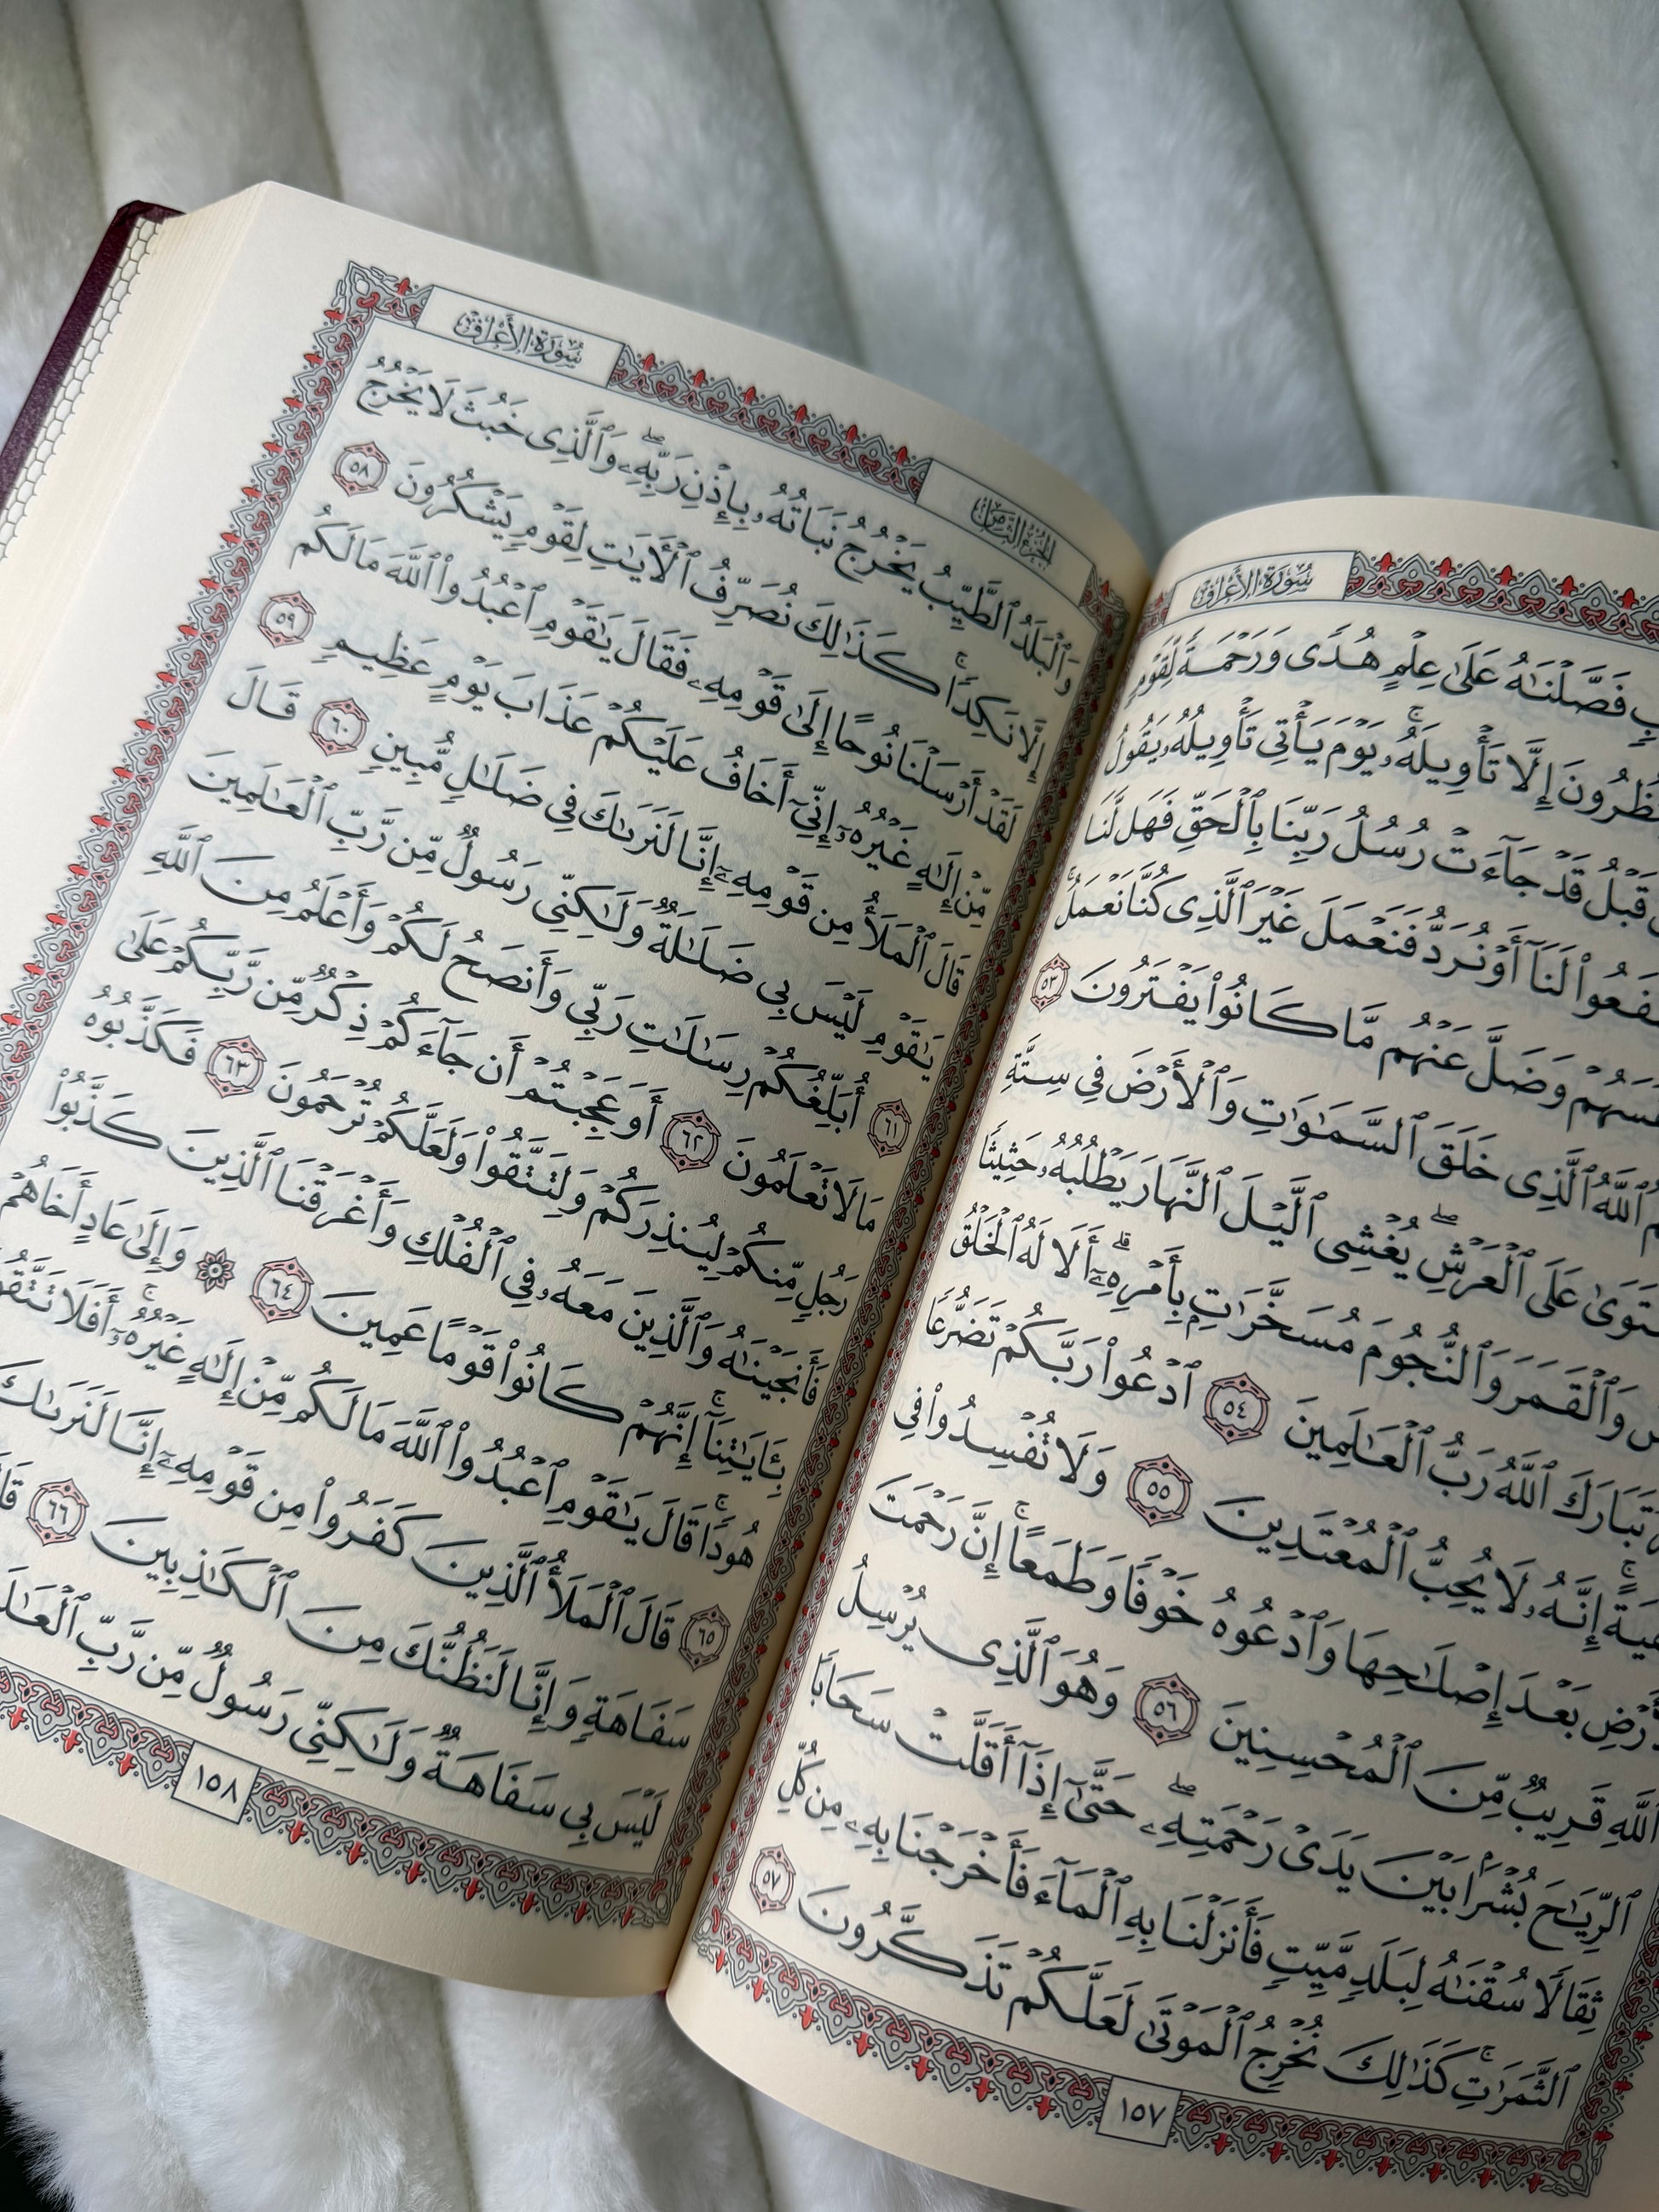 سُورَةُ الأَعْرَافِ
فَصَّلْنَٰهُ عَلَىٰ عِلْمٍ هُدًى وَرَحْمَةً لِّقَوْمٍ
إِلَّا تَأْوِيلَهُۥۚ يَوْمَ يَأْتِى تَأْوِيلُهُۥ يَقُولُ
قَبْلُ قَدْ جَآءَتْ رُسُلُ رَبِّنَا بِٱلْحَقِّ فَهَل لَّنَا
لَنَآ أَوْ نُرَدُّ فَنَعْمَلَ غَيْرَ ٱلَّذِى كُنَّا نَعْمَلُۚ
وَضَلَّ عَنْهُم مَّا كَانُوا۟ يَفْتَرُونَ ٥٣
ٱللَّهُ ٱلَّذِى خَلَقَ ٱلسَّمَٰوَٰتِ وَٱلْأَرْضَ فِى سِتَّةِ
عَلَى ٱلْعَرْشِۖ يُغْشِى ٱلَّيْلَ ٱلنَّهَارَ يَطْلُبُهُۥ حَثِيثًا
وَٱلْقَمَرَ وَٱلنُّجُومَ مُسَخَّرَٰتٍۭ بِأَمْرِهِۦٓۗ أَلَا لَهُ ٱلْخَلْقُ
تَبَارَكَ ٱللَّهُ رَبُّ ٱلْعَٰلَمِينَ ٥٤ ٱدْعُوا۟ رَبَّكُمْ تَضَرُّعًا
إِنَّهُۥ لَا يُحِبُّ ٱلْمُعْتَدِينَ ٥٥ وَلَا تُفْسِدُوا۟ فِى
بَعْدَ إِصْلَٰحِهَا وَٱدْعُوهُ خَوْفًا وَطَمَعًاۚ إِنَّ رَحْمَتَ
ٱللَّهِ قَرِيبٌ مِّنَ ٱلْمُحْسِنِينَ ٥٦ وَهُوَ ٱلَّذِى يُرْسِلُ
ٱلرِّيَٰحَ بُشْرًۢا بَيْنَ يَدَىْ رَحْمَتِهِۦۖ حَتَّىٰٓ إِذَآ أَقَلَّتْ سَحَابًا
ثِقَالًا سُقْنَٰهُ لِبَلَدٍ مَّيِّتٍ فَأَنزَلْنَا بِهِ ٱلْمَآءَ فَأَخْرَجْنَا بِهِۦ مِن كُلِّ
ٱلثَّمَرَٰتِۚ كَذَٰلِكَ نُخْرِجُ ٱلْمَوْتَىٰ لَعَلَّكُمْ تَذَكَّرُونَ ٥٧
١٥٧
الجُزْءُ الثَّامِنُ سُورَةُ الأَعْرَافِ
وَٱلْبَلَدُ ٱلطَّيِّبُ يَخْرُجُ نَبَاتُهُۥ بِإِذْنِ رَبِّهِۦۖ وَٱلَّذِى خَبُثَ لَا يَخْرُجُ
إِلَّا نَكِدًاۚ كَذَٰلِكَ نُصَرِّفُ ٱلْءَايَٰتِ لِقَوْمٍ يَشْكُرُونَ ٥٨
لَقَدْ أَرْسَلْنَا نُوحًا إِلَىٰ قَوْمِهِۦ فَقَالَ يَٰقَوْمِ ٱعْبُدُوا۟ ٱللَّهَ مَا لَكُم
مِّنْ إِلَٰهٍ غَيْرُهُۥٓ إِنِّىٓ أَخَافُ عَلَيْكُمْ عَذَابَ يَوْمٍ عَظِيمٍ ٥٩
قَالَ ٱلْمَلَأُ مِن قَوْمِهِۦٓ إِنَّا لَنَرَىٰكَ فِى ضَلَٰلٍ مُّبِينٍ ٦٠ قَالَ
يَٰقَوْمِ لَيْسَ بِى ضَلَٰلَةٌ وَلَٰكِنِّى رَسُولٌ مِّن رَّبِّ ٱلْعَٰلَمِينَ
٦١ أُبَلِّغُكُمْ رِسَٰلَٰتِ رَبِّى وَأَنصَحُ لَكُمْ وَأَعْلَمُ مِنَ ٱللَّهِ
مَا لَا تَعْلَمُونَ ٦٢ أَوَعَجِبْتُمْ أَن جَآءَكُمْ ذِكْرٌ مِّن رَّبِّكُمْ عَلَىٰ
رَجُلٍ مِّنكُمْ لِيُنذِرَكُمْ وَلِتَتَّقُوا۟ وَلَعَلَّكُمْ تُرْحَمُونَ ٦٣ فَكَذَّبُوهُ
فَأَنجَيْنَٰهُ وَٱلَّذِينَ مَعَهُۥ فِى ٱلْفُلْكِ وَأَغْرَقْنَا ٱلَّذِينَ كَذَّبُوا۟
بِـَٔايَٰتِنَآۚ إِنَّهُمْ كَانُوا۟ قَوْمًا عَمِينَ ٦٤ ۞ وَإِلَىٰ عَادٍ أَخَاهُمْ
هُودًاۚ قَالَ يَٰقَوْمِ ٱعْبُدُوا۟ ٱللَّهَ مَا لَكُم مِّنْ إِلَٰهٍ غَيْرُهُۥٓۚ أَفَلَا
٦٥ قَالَ ٱلْمَلَأُ ٱلَّذِينَ كَفَرُوا۟ مِن قَوْمِهِۦٓ إِنَّا لَنَرَىٰكَ
سَفَاهَةٍ وَإِنَّا لَنَظُنُّكَ مِنَ ٱلْكَٰذِبِينَ ٦٦
لَيْسَ بِى سَفَاهَةٌ وَلَٰكِنِّى رَسُولٌ مِّن رَّبِّ
١٥٨